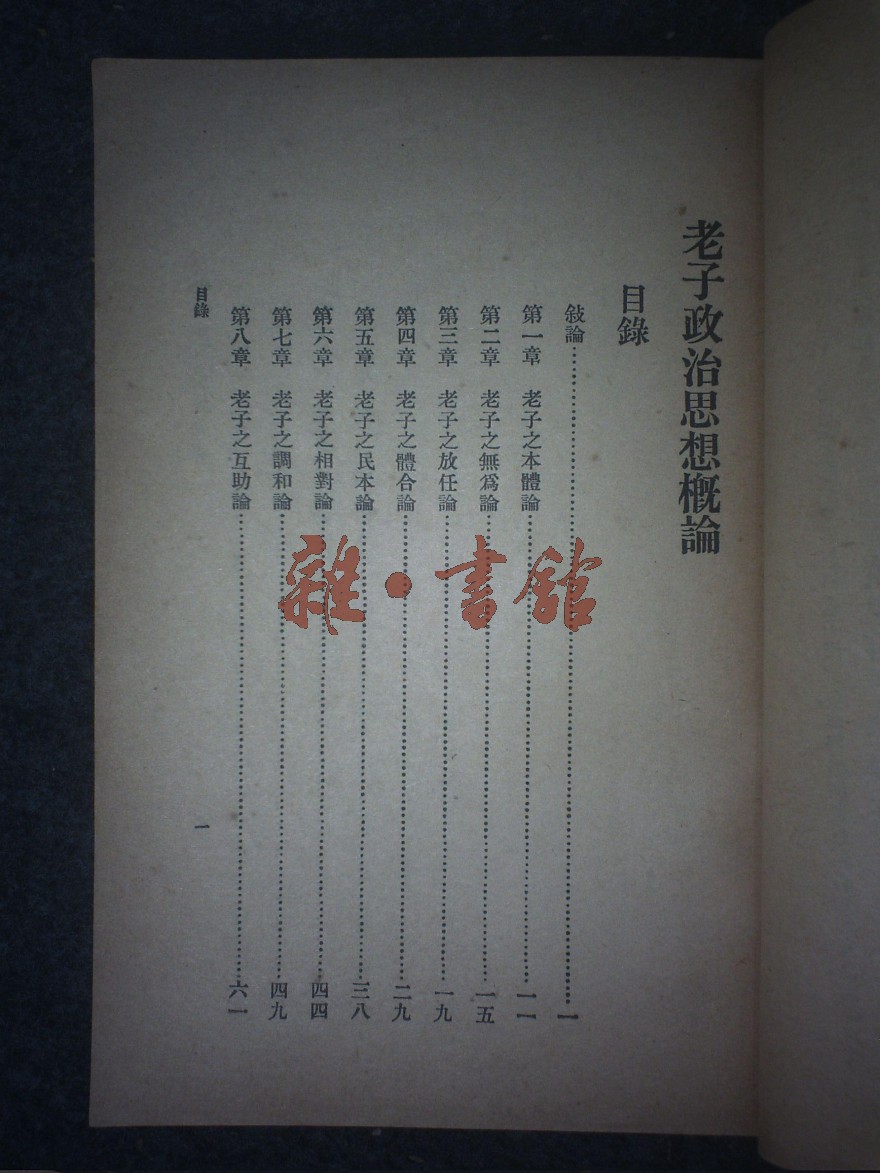 老子政治思想概論
目錄
敍論……一
第一章 老子之本體論……一一
第二章 老子之無爲論……一五
第三章 老子之放任論……一九
第四章 老子之體合論……二九
第五章 老子之民本論……三八
第六章 老子之相對論……四四
第七章 老子之調和論……四九
第八章 老子之互助論……六一
目錄
一
雜·書館